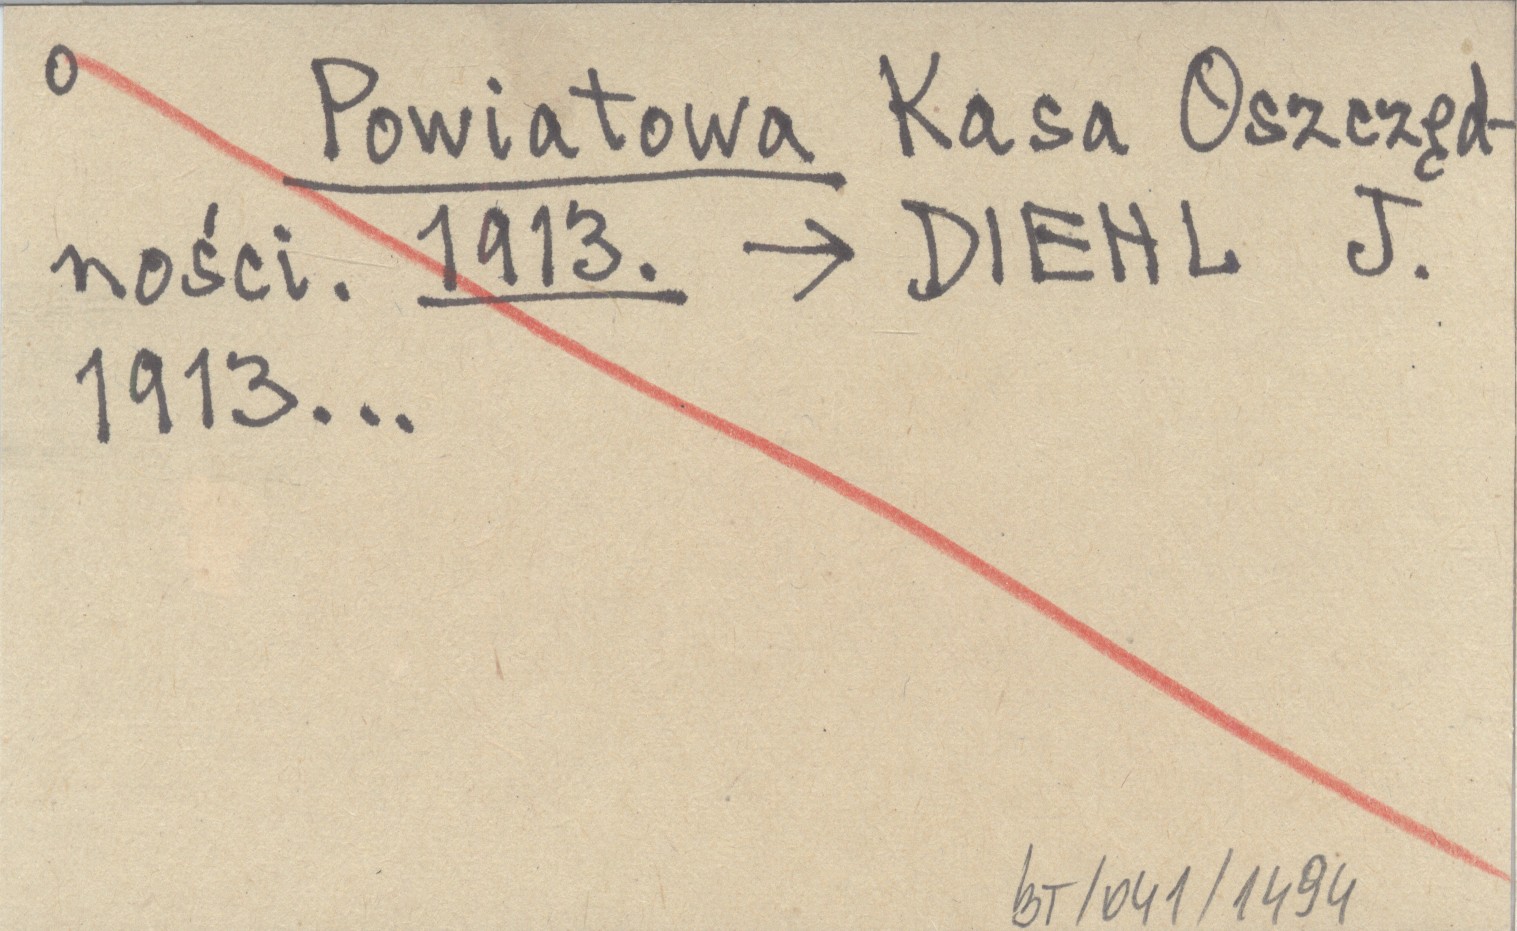 O Powiatowa Kasa Oszczęd-
ności. 1913. → DIEHL J.
1913...
BT/041/1494